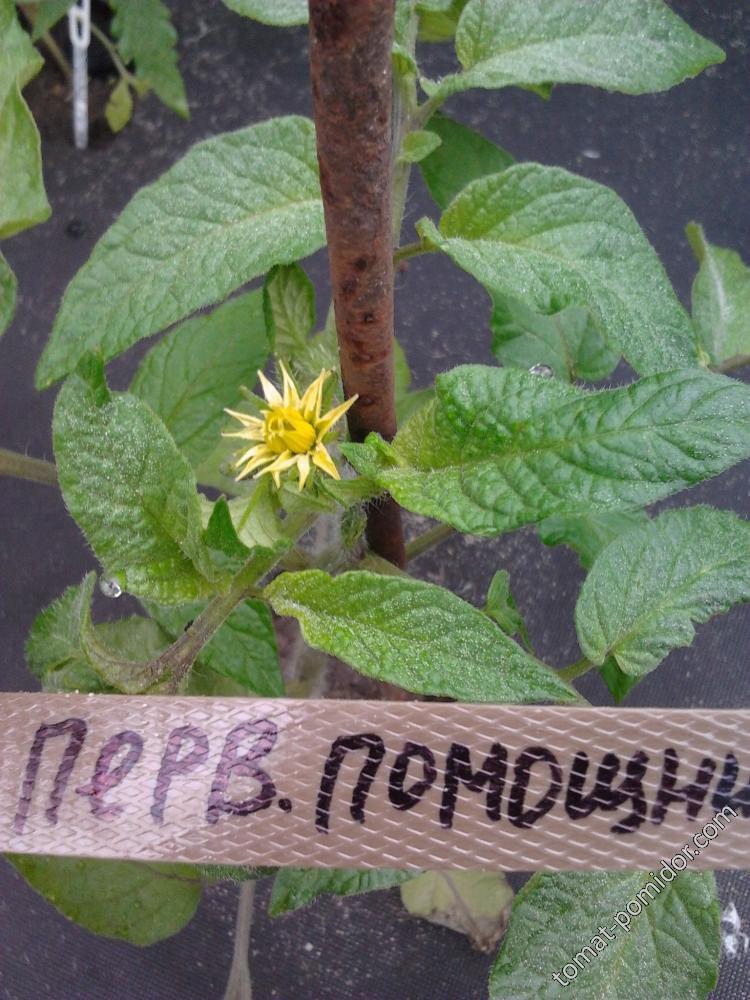 ПЕРВ. ПОМОЩНИ
tomat-pomidor.com